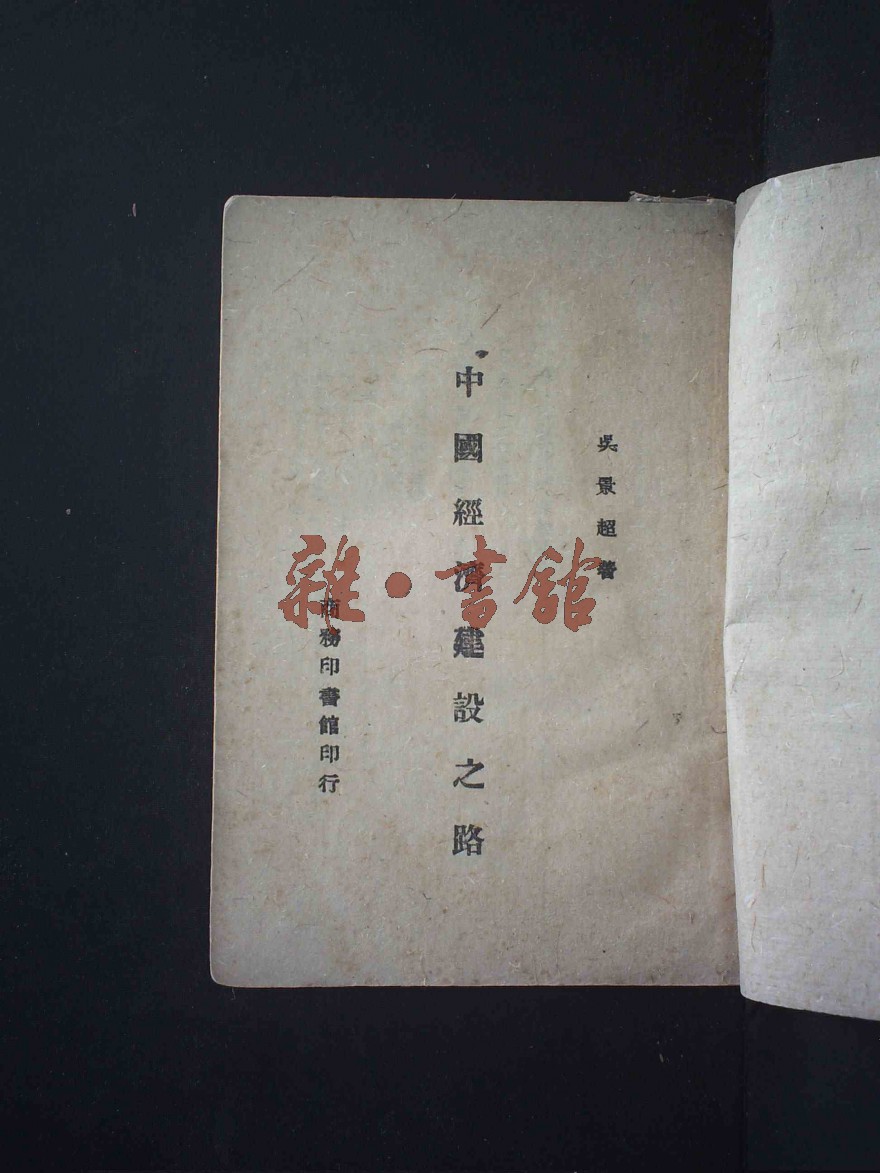 吳景超著
中國經濟建設之路
商務印書館印行
雜·書館